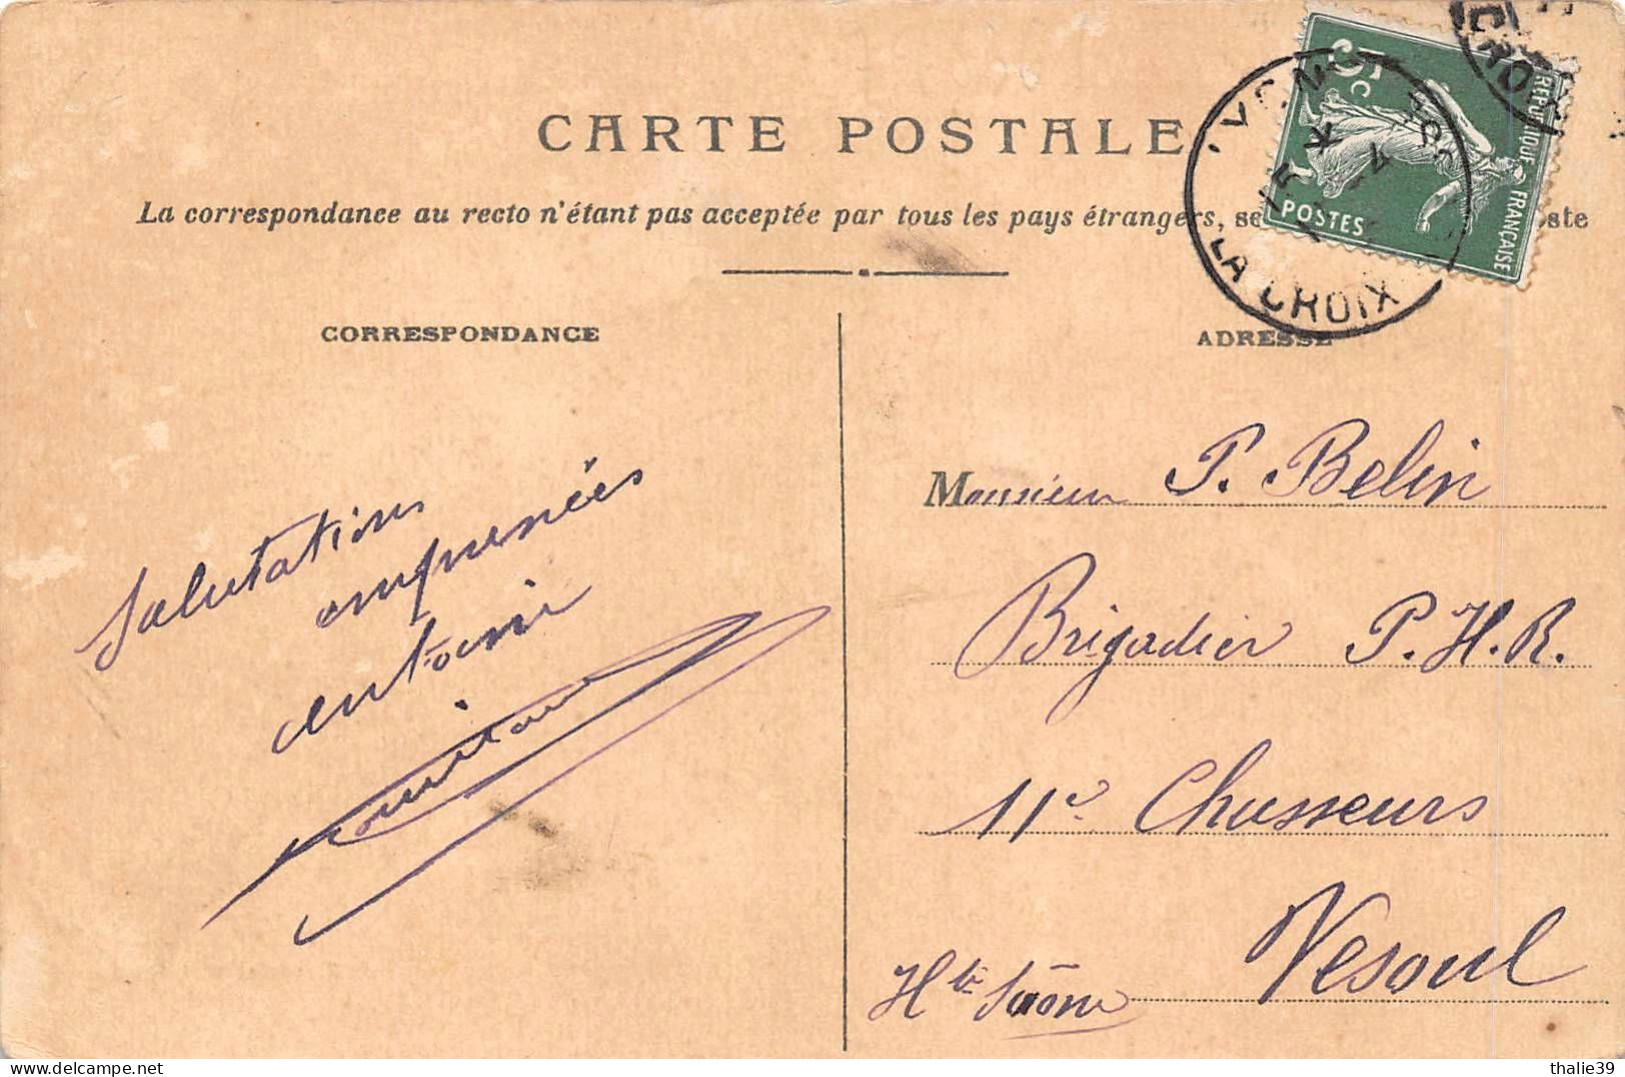 CARTE POSTALE
La correspondance au recto n'étant pas acceptée par tous les pays étrangers, se
CORRESPONDANCE
ADRESSE
5c
POSTES
REPUBLIQUE FRANÇAISE
LA CROIX
CROIX
Salutations
empressées
Monsieur P. Belin
Brigadier P.H.R.
11e Chasseurs
Vesoul
Hte Saône
thalie39